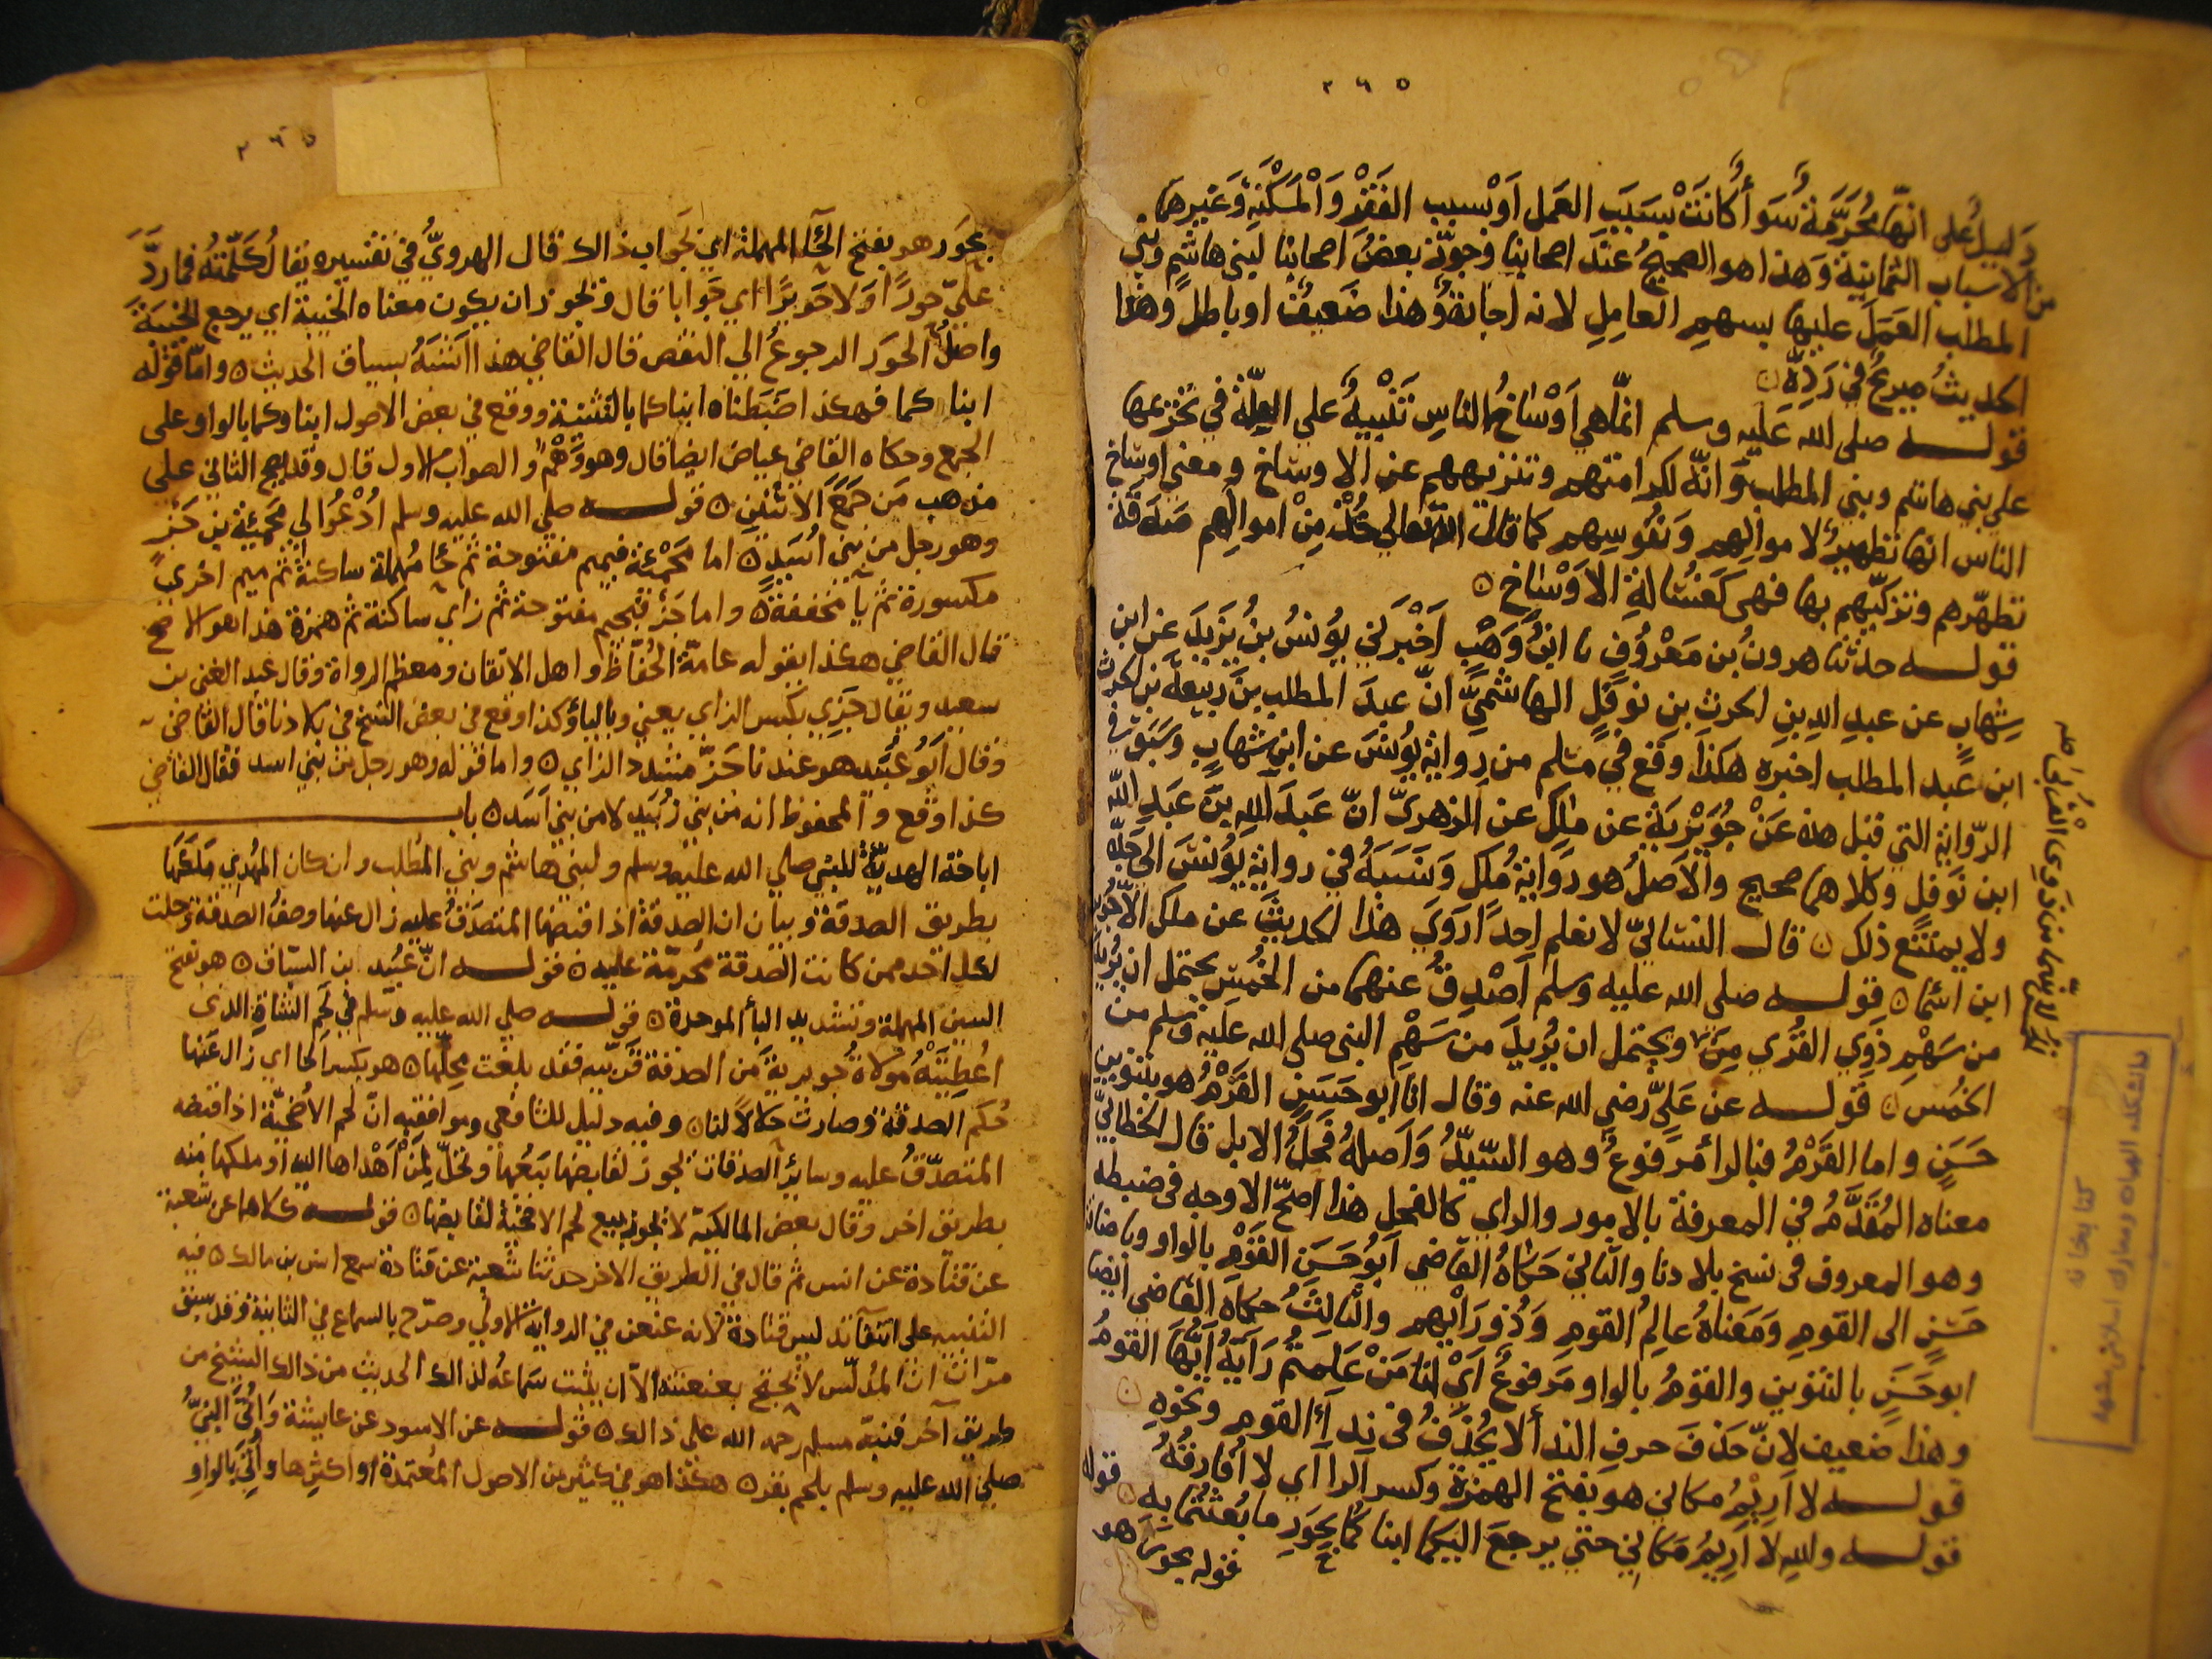 ٢٦٥
دليل على انها محرمة سوأ كانت بسبب العمل او بسبب الفقر والمسكنة وغيرها
من الاسباب الثمانية وهذا هو الصحيح عند اصحابنا وجوّز بعض اصحابنا لبني هاشم وبني
المطلب العمل عليها بسهم العامل لانه اجانة وهذا ضعيف او باطل وهذا
الحديث صريح في رده
قوله صلى الله عليه وسلم انما هي اوساخ الناس تنبيه على العلة في تحريمها
على بني هاشم وبني المطلب وانه لكرامتهم وتنزيههم عن الاوساخ ومعنى اوساخ
الناس انها تطهير لاموالهم ونفوسهم كما قال الله تعالى خذ من اموالهم صدقة
تطهرهم وتزكيهم بها فهى كغسالة الاوساخ
قوله حدثنا هرون بن معروف نا ابن وهب اخبرني يونس بن يزيد عن ابن
شهاب عن عبد الله بن الحرث بن نوفل الهاشمي انّ عبد المطلب بن ربيعة بن الحرث
ابن عبد المطلب اخبره هكذا وقع في مسلم من رواية يونس عن ابن شهاب وسبق في
الرواية التي قبل هذه عن جويرية عن ملك عن الزهرى انّ عبد الله بن عبد الله
ابن نوفل وكلاهما صحيح والاصل هو رواية ملك ونسبه في رواية يونس الى جده
ولا يمتنع ذلك قال النسائي لا نعلم احدا روى هذا الحديث عن ملك الا جويرية
ابن اسما قوله صلى الله عليه وسلم اصدق عنهما من الخمس يحتمل ان يريد
من سهم ذوي القربي من ويحتمل ان يريد من سهم النبى صلى الله عليه وسلم من
الخمس قوله عن علي رضي الله عنه وقال انا ابو حسن القرم هو بتنوين
حسن واما القرم فبالرأ مرفوع وهو السيّد واصله فحل الابل قال الخطابي
معناه المقدم في المعرفة بالامور والراي كالفحل هذا اصحّ الاوجه فى ضبطه
وهو المعروف فى نسخ بلادنا والثاني حكاه القاضي ابو حسن القوم بالواو وباضافة
حسن الى القوم ومعناه عالم القوم وذو رأيهم والثالث حكاه القاضي ايضا
ابو حسن بالتنوين والقوم بالواو مرفوع اي انا من علمتم رأيه ايها القوم
وهذا ضعيف لانّ حذف حرف الندأ لا يحذف فى ندأ القوم ونحوه
قوله لا اريم مكاني هو بفتح الهمزة وكسر الرأ اي لا افارقه قوله
قوله والله لا اريم مكاني حتي يرجع اليكما ابنا كما بحور ما بعثتما به
قوله بحور هو
كتابخانه
دانشكده الهيات ومعارف اسلامى مشهد
٢٦٥
بحور هو بفتح الحآ المهملة اي بجواب ذالك قال الهرويّ في تفسيره يقال كلّمته فما ردّ
علي حورا ولا حويرا اي جوابا قال ويجوز ان يكون معناه الخيبة اي يرجع الخيبة
واصل الحور الرجوع الي النقص قال القاضي هذا اشبه بسياق الحديث واما قوله
ابنا كما فهكذا ضبطناه ابنا كما بالتثنية ووقع في بعض الاصول ابناوكما بالواو على
الجمع وحكاه القاضي عياض ايضا قال وهو وهم والصواب الاول قال وقد يصح الثاني على
مذهب من جمع الاثنين قوله صلي الله عليه وسلم ادعوا لي محمية بن جزء
وهو رجل من بني اسد اما محمية فبميم مفتوحة ثم حا مهملة ساكنة ثم ميم اخرى
مكسورة ثم يا مخففة واما جزء فبجيم مفتوحة ثم زاي ساكنة ثم همزة هذا هو الاصح
قال القاضي هكذا يقوله عامة الحفاظ واهل الاتقان ومعظم الرواة وقال عبد الغني بن
سعيد ويقال جزي بكسر الزاي يعني وبالياء وكذا وقع في بعض النسخ في بلادنا قال القاضي
وقال ابو عبيد هو عندنا جزّ مشدد الزاي واما قوله وهو رجل من بني اسد فقال القاضي
كذا وقع والمحفوظ انه من بني زبيد لا من بني اسد باب
اباحة الهدية للنبي صلي الله عليه وسلم ولبني هاشم وبني المطلب وان كان المهدي ملكها
بطريق الصدقة وبيان ان الصدقة اذا قبضها المتصدق عليه زال عنها وصف الصدقة وحلت
لكل احد ممن كانت الصدقة محرمة عليه قوله انّ عبيد ابن السباق هو بفتح
السين المهملة وتشديد البأ الموحدة قوله صلي الله عليه وسلم في لحم الشاة الذى
اعطيته مولاة جويرية من الصدقة قربيه فقد بلغت محلها هو بكسر الحا اي زال عنها
حكم الصدقة وصارت حلالا لنا وفيه دليل للشافعي وموافقيه انّ لحم الاضحية اذا قبضه
المتصدق عليه وسائر الصدقات يجوز لقابضها بيعها وتحلّ لمن اهداها اليه او ملكها منه
بطريق اخر وقال بعض المالكية لا يجوز بيع لحم الاضحية لقابضها قوله كلاهما عن شعبة
عن قتادة عن انس ثم قال في الطريق الاخر حدثنا شعبة عن قتادة سمع انس بن مالك فيه
التنبيه على انتفآ تدليس قتادة لانه عنعن في الرواية الاولي وصرّح بالسماع في الثانية وقد سبق
مرّات انّ المدلّس لا يحتج بعنعنته الا ان يثبت سماعه لذالك الحديث من ذالك الشيخ من
طريق آخر فنبّه مسلم رحمه الله على ذالك قوله عن الاسود عن عايشة واتي النبيّ
صلي الله عليه وسلم بلحم بقر هكذا هو في كثير من الاصول المعتمدة او اكثرها واتي بالواو